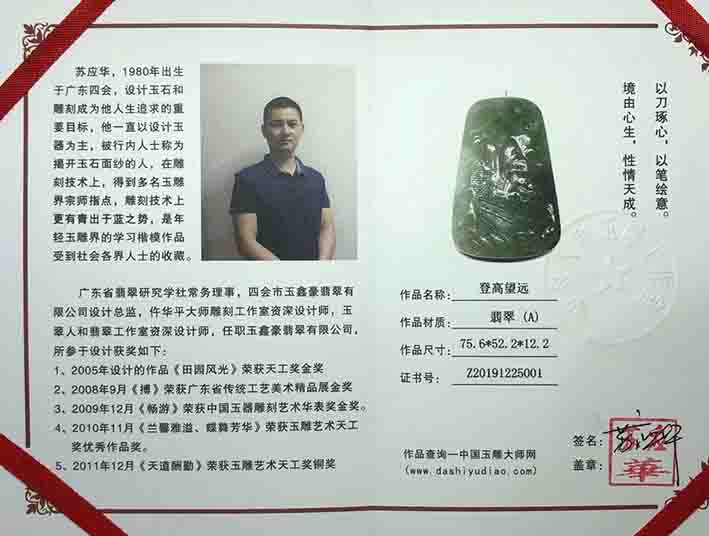 苏应华，1980年出生
于广东四会，设计玉石和
雕刻成为他人生追求的重
要目标，他一直以设计玉
器为主，被行内人士称为
揭开玉石面纱的人，在雕
刻技术上，得到多名玉雕
界宗师指点，雕刻技术上
更有青出于蓝之势，是年
轻玉雕界的学习楷模作品
受到社会各界人士的收藏。
广东省翡翠研究学社常务理事，四会市玉鑫豪翡翠有
限公司设计总监，仵华平大师雕刻工作室资深设计师，玉
翠人和翡翠工作室资深设计师，任职玉鑫豪翡翠有限公司，
所参于设计获奖如下：
1、2005年设计的作品《田园风光》荣获天工奖金奖
2、2008年9月《搏》荣获广东省传统工艺美术精品展金奖
3、2009年12月《畅游》荣获中国玉器雕刻艺术华表奖金奖。
4、2010年11月《兰馨雅溢、蝶舞芳华》荣获玉雕艺术天工
奖优秀作品奖。
5、2011年12月《天道酬勤》荣获玉雕艺术天工奖铜奖
以刀琢心，以笔绘意。
境由心生，性情天成。
作品名称：登高望远
作品材质：翡翠（A）
作品尺寸：75.6*52.2*12.2
证书号：Z20191225001
作品查询一中国玉雕大师网
(www.dashiyudiao.com)
签名：
盖章：